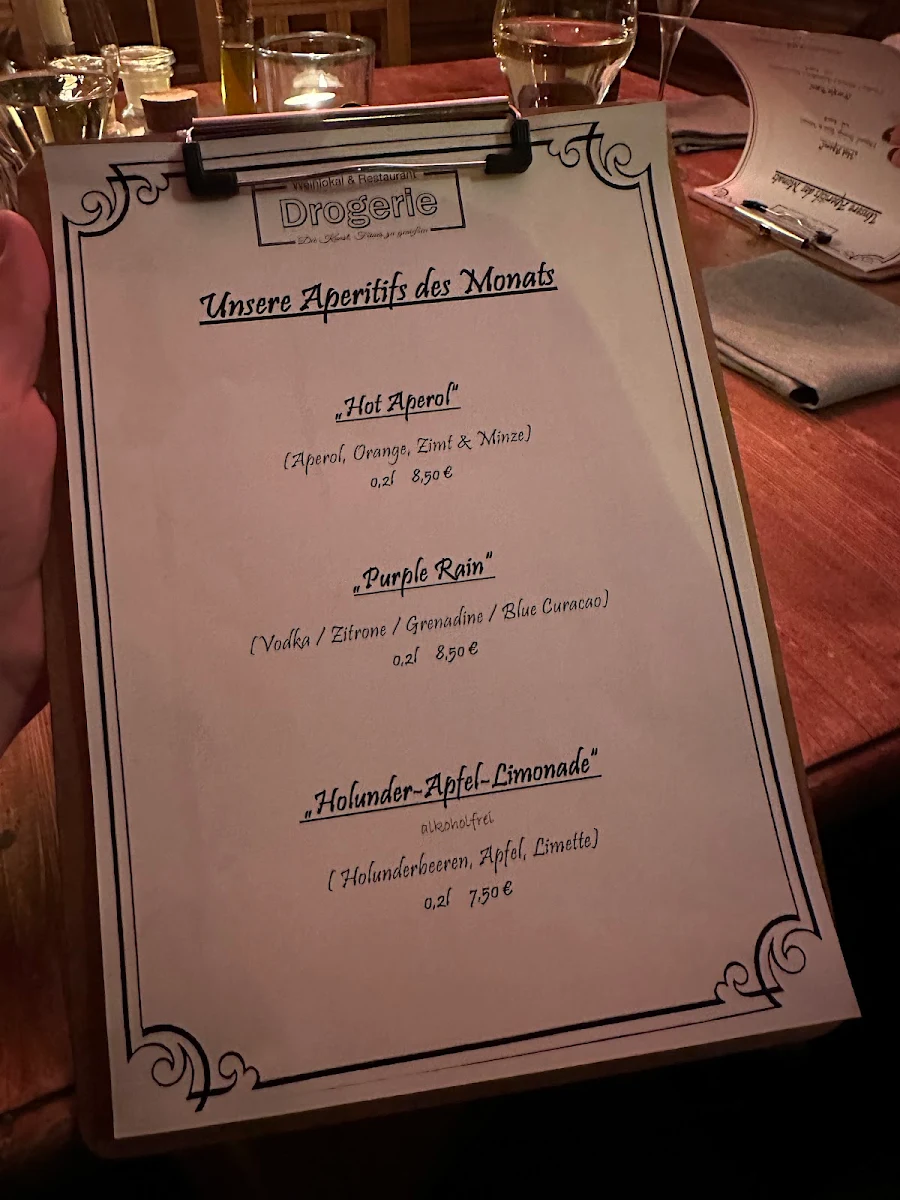 Weinlokal & Restaurant
Drogerie
Unsere Aperitifs des Monats
„Hot Aperol“
(Aperol, Orange, Zimt & Minze)
0,2l 8,50 €
„Purple Rain“
(Vodka / Zitrone / Grenadine / Blue Curacao)
0,2l 8,50 €
„Holunder-Apfel-Limonade“
alkoholfrei
( Holunderbeeren, Apfel, Limette)
0,2l 7,50 €
Unsere Aperitifs des Monats
„Hot Aperol“
„Purple Rain“